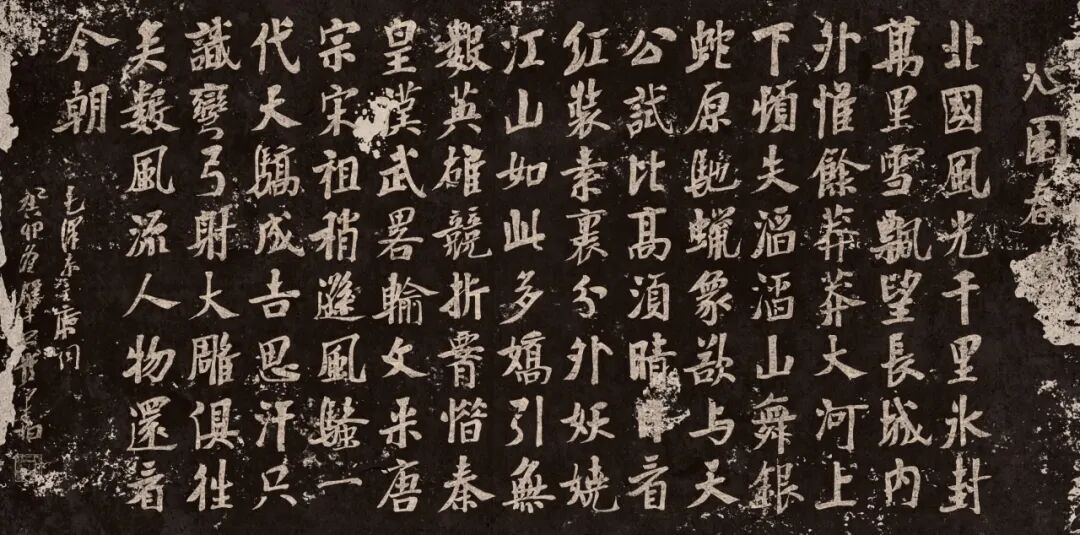 沁園春
北國風光千里氷封
萬里雪飄望長城内
外惟餘莽莽大河上
下頓失滔滔山舞銀
蛇原馳蠟象欲与天
公試比髙須晴日看
紅裝素裹分外妖嬈
江山如此多嬌引無
數英雄競折腰惜秦
皇漢武畧輸文采唐
宗宋祖稍遜風騷一
代天驕成吉思汗只
識彎弓射大雕俱往
矣數風流人物還看
今朝
毛澤東詞
癸卯